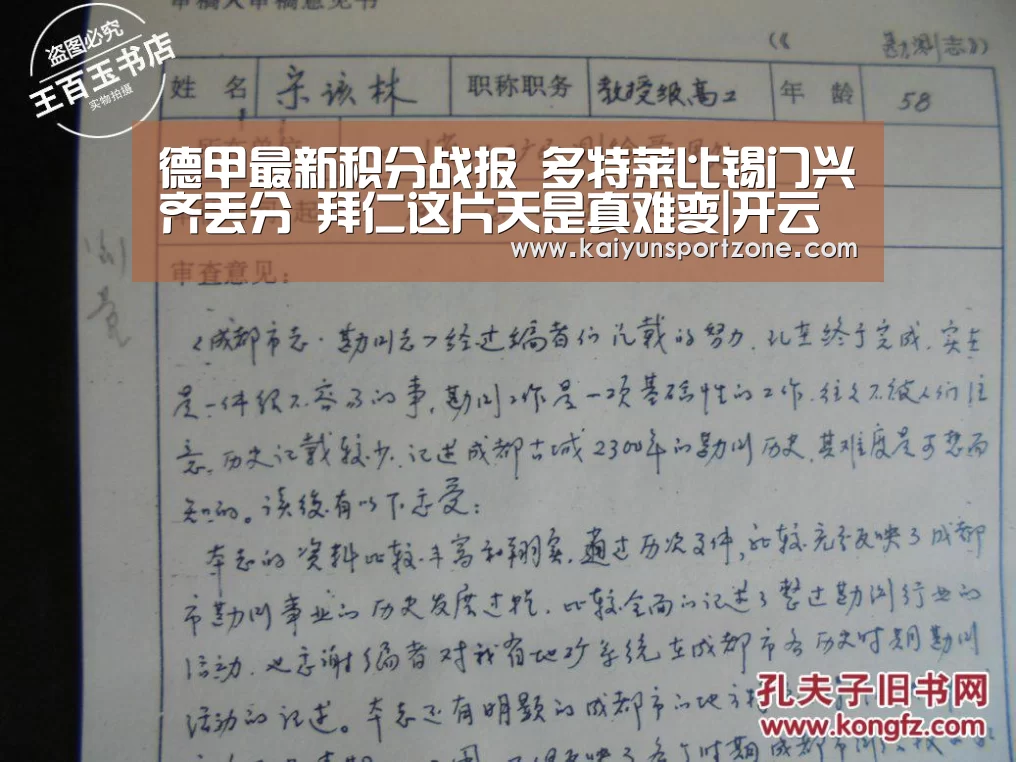 审稿人审稿意见书
(《 勘测志》)
盗图必究
王百玉书店
实物拍摄
姓 名 宋该林 职称职务 教授级高工 年 龄 58
德甲最新积分战报 多特莱比锡门兴
齐丢分 拜仁这片天是真难变|开云
www.kaiyunsportzone.com
审查意见:
测
量
《成都市志·勘测志》经过编者们的努力,现在终于完成,实在
是一件很不容易的事,勘测工作是一项基础性的工作,往往不被人们注
意,历史记载较少,记述成都古城2300年的勘测历史,其难度是可想而
知的。读后有以下感受:
本志的资料比较丰富和翔实,通过历次文件,比较充分反映了成都
市勘测事业的历史发展过程,比较全面的记述了整过勘测行业的
活动,也感谢编者对我省地矿系统在成都市各历史时期勘测
活动的记述。本志还有明显的成都市的地方
孔夫子旧书网
www.kongfz.com